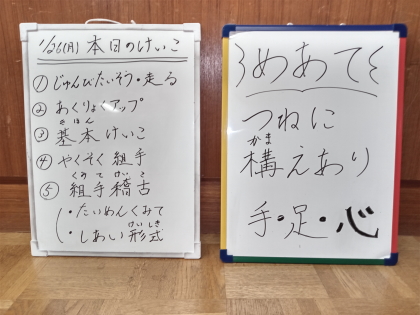 1/26(月)本日のけいこ
①じゅんびたいそう・走る
②あくりょくアップ
きほん
③基本けいこ
④やくそく組手
くみて けいこ
⑤組手稽古
・たいめんくみて
けいしき
・しあい形式
めあて
つねに
かま
構えあり
手・足・心